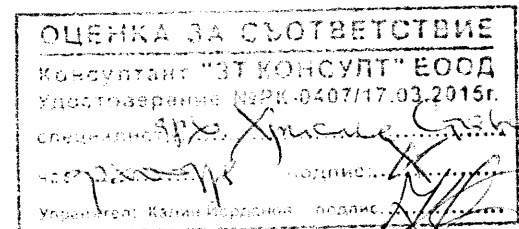 ОЦЕНКА ЗА СЪОТВЕТСТВИЕ
Консултант "ЗТ КОНСУЛТ" ЕООД
Удостоверение №РК-0407/17.03.2015г.
специалист: арх.
част подпис:
Управител: Калин Йорданов подпис: